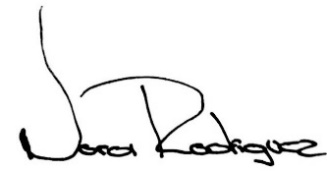 Nora Rodriguez